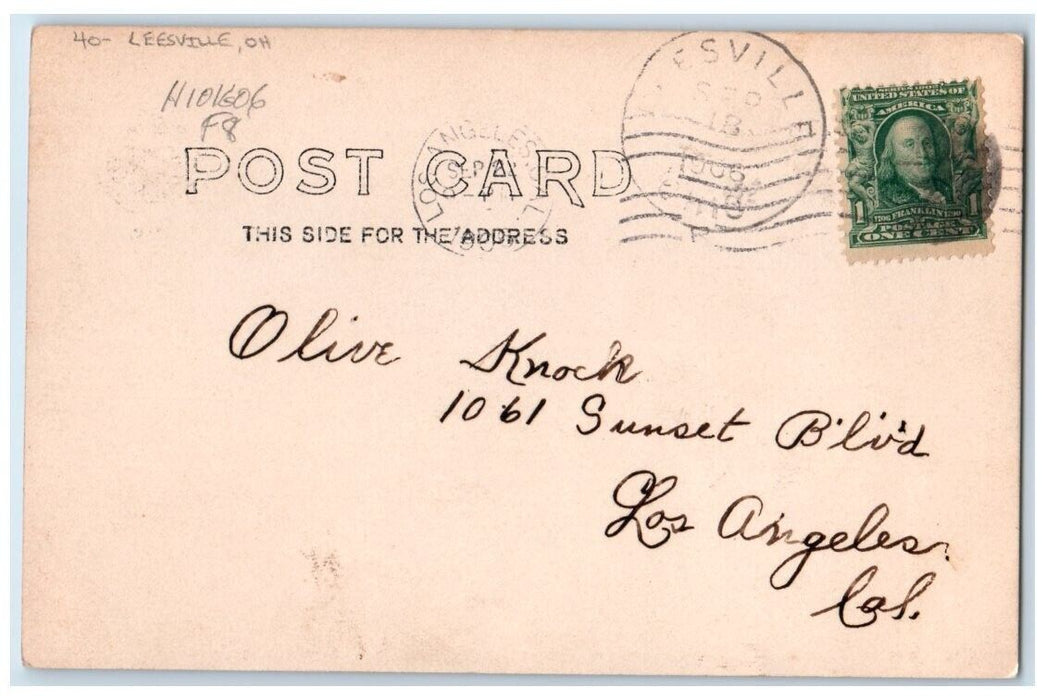 40- LEESVILLE, OH
H101606
F8
ESVILLE
SEP
18
1906
OHIO
LOS ANGELES
SEP
POST CARD
THIS SIDE FOR THE ADDRESS
SERIES 1902
UNITED STATES OF
AMERICA
1 1
1706 FRANKLIN 1790
POSTAGE
ONE CENT
Olive Knock
1061 Sunset B'lv'd
Los Angeles.
Cal.